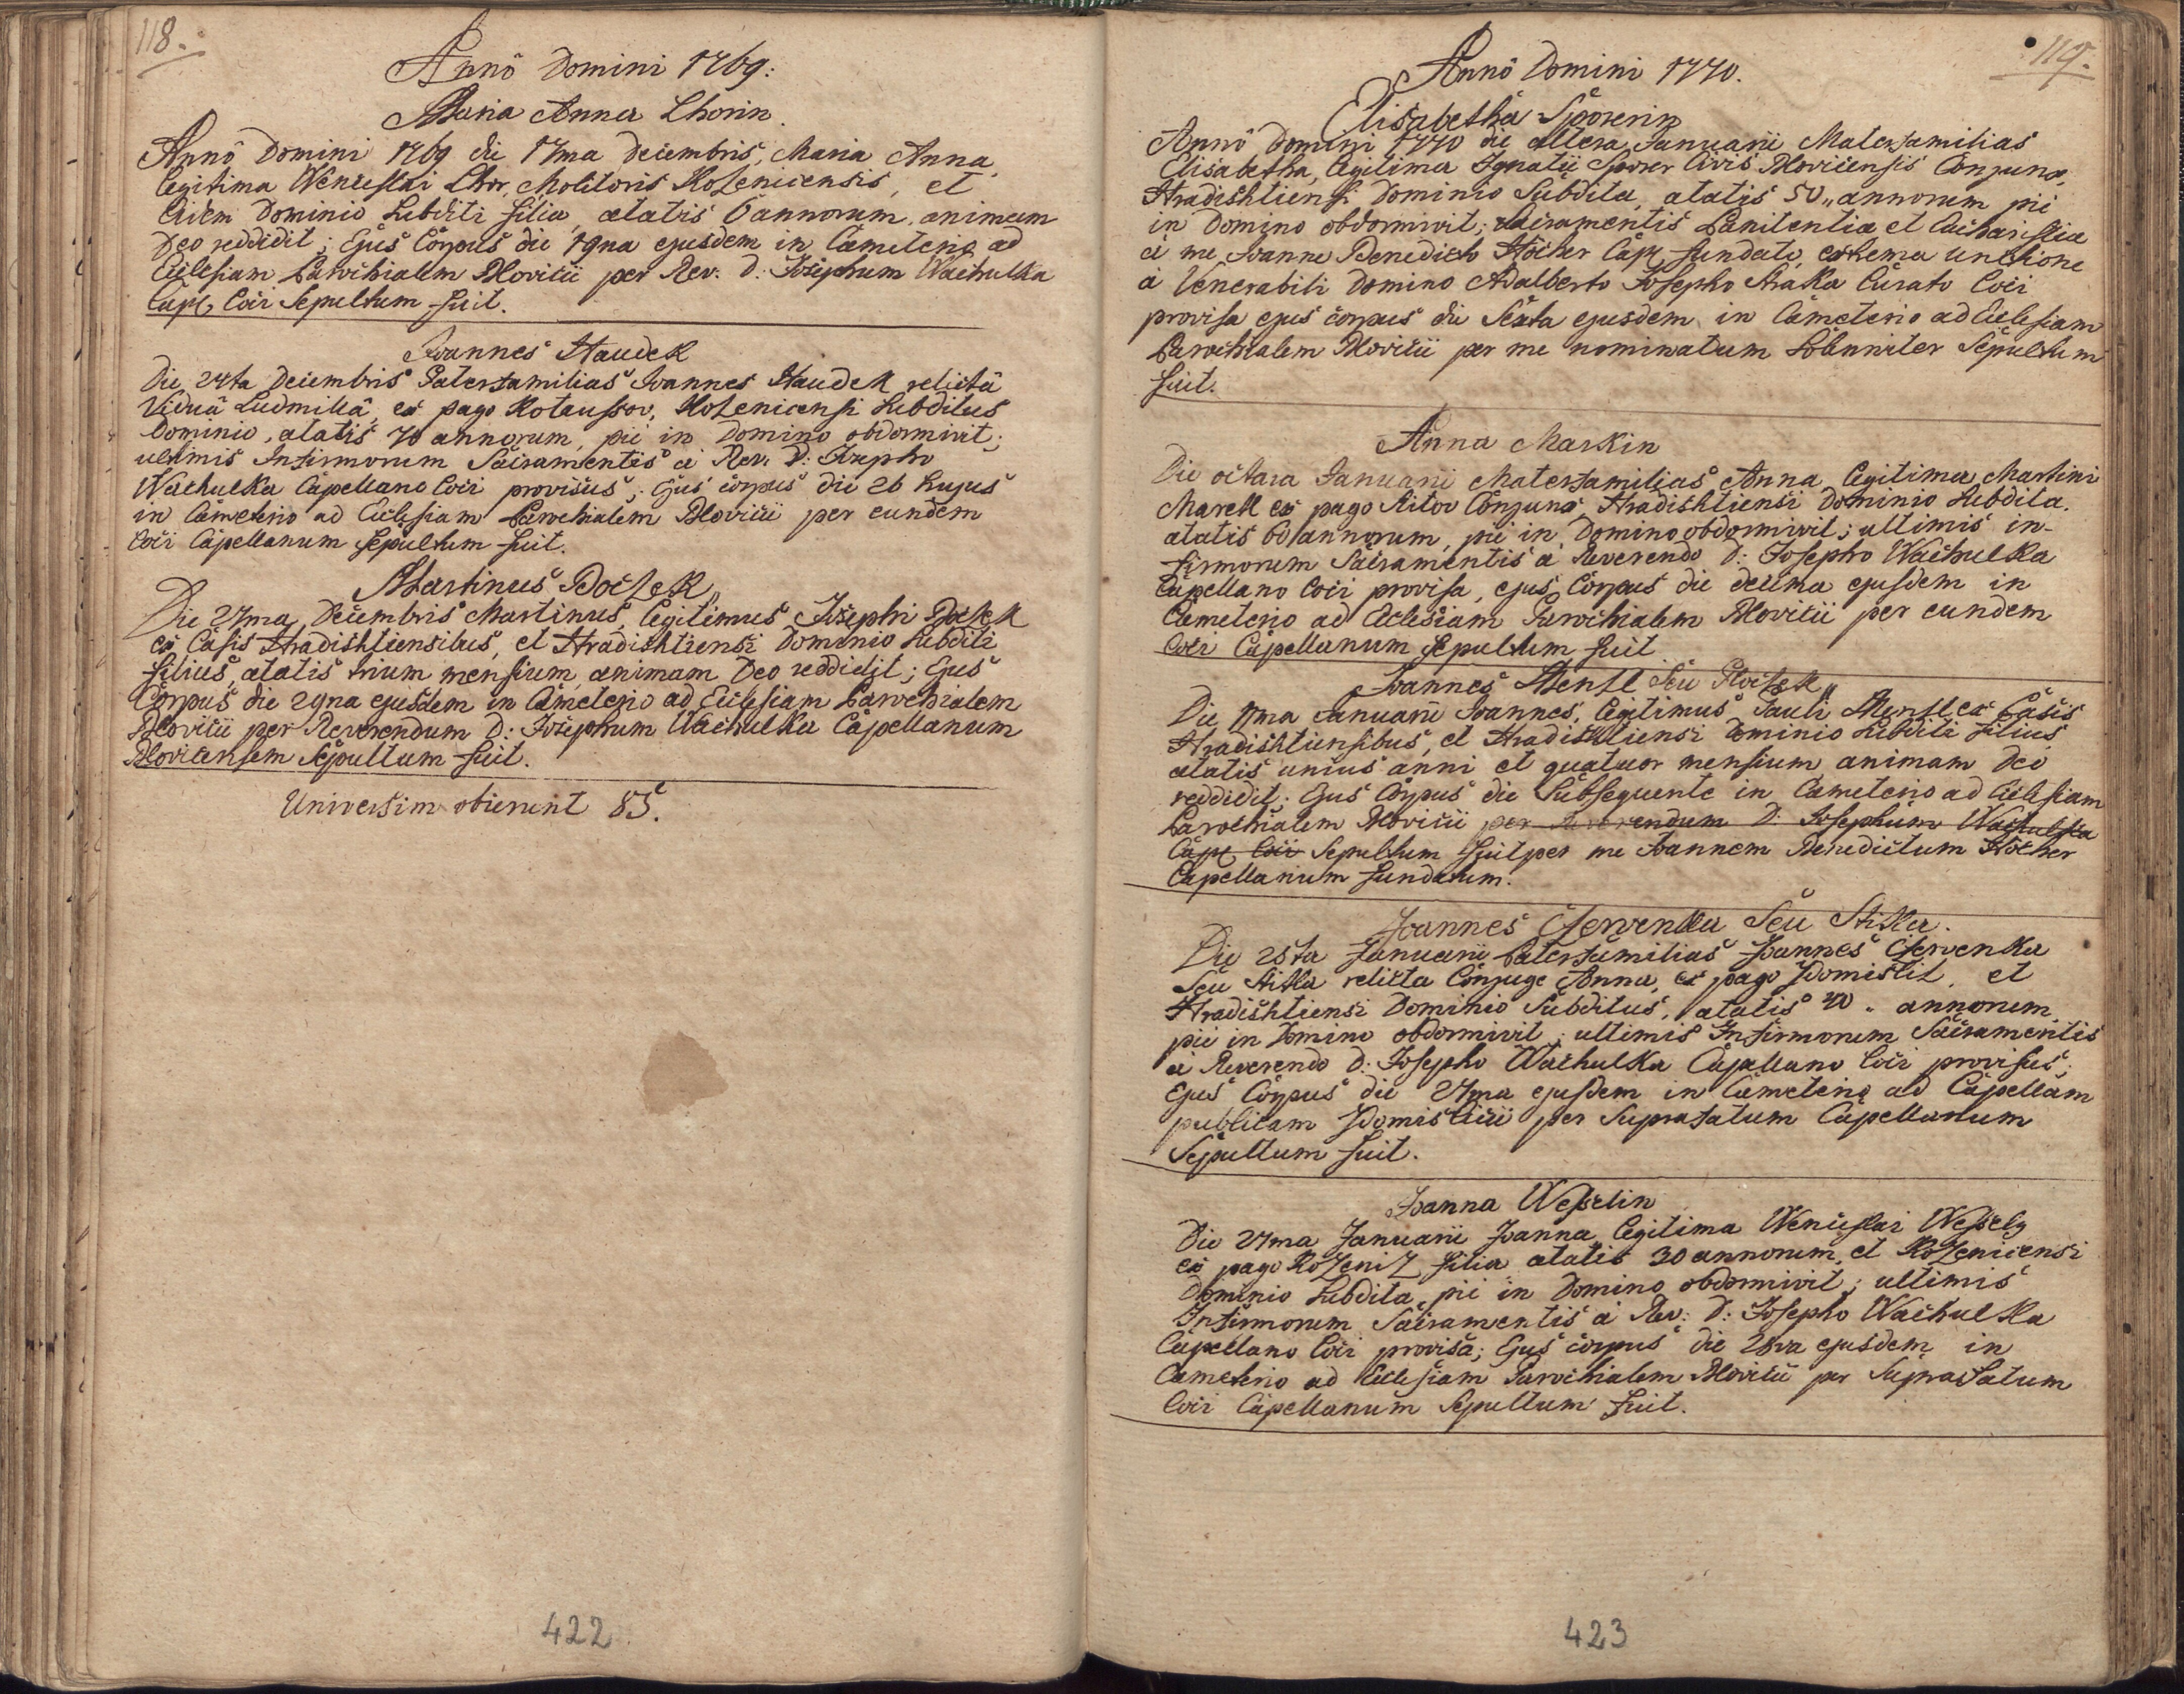 118.
Anno Domini 1769:
Maria Anna Lhorin.
Anno Domini 1769 die 17ma decembris, Maria Anna,
legitima Wenceslai Lhor, Molitoris Kozenicensis, et
eidem Dominio Subditi filia, ætatis 6 annorum, animam
Deo reddidit; Ejus Corpus die 19na ejusdem in Cæmeterio ad
Ecclesiam Parochialem Blovicii per Rev. D: Josephum Wachulka
Capl. Loci Sepultum fuit.
Joannes Staudek
Die 24ta Decembris Paterfamilias Joannes Staudek relictâ
Viduâ Ludmillâ, ex pago Kotaussov, Kozenicensi Subditus
Dominio, ætatis 70 annorum, pié in Domino obdormivit;
ultimis Infirmorum Sacramentis à Rev. D: Josepho
Wachulka Capellano Loci provisus; Ejus corpus die 26 hujus
in Cæmeterio ad Ecclesiam Parochialem Blovicii per eundem
Loci Capellanum sepultum fuit.
Martinus Boczek
Die 27ma Decembris Martinus, legitimus Josephi Boczek
ex Casis Hradishtiensibus, et Hradishtiensi Dominio Subditi
filius, ætatis trium mensium, animam Deo reddidit; Ejus
Corpus die 29na ejusdem in Cæmeterio ad Ecclesiam Parochialem
Blovicii per Reverendum D: Josephum Wachulka Capellanum
Blovicensem Sepultum fuit.
Universim obierunt 85.
422
119.
Anno Domini 1770.
Elisabetha Sporerin
Anno Domini 1770 die altera Januarii Materfamilias
Elisabetha, legitima Ignatii Sporer Civis Blovicensis Conjunx,
Hradishtiensi Dominio Subdita, ætatis 50,, annorum pié
in Domino obdormivit; Sacramentis Pœnitentiæ et Eucharistiæ
à me Joanne Benedicto Höcher Capl. fundato, extrema unctione
à Venerabili Domino Adalberto Josepho Straka Curato Loci
provisa ejus corpus die Sexta ejusdem in Cæmeterio ad Ecclesiam
Parochialem Blovicii per me nominatum Solenniter Sepultum
fuit.
Anna Markin
Die octava Januarii Materfamilias Anna, legitima Martini
Marek ex pago Ritov Conjunx, Hradishtiensi Dominio Subdita,
ætatis 60 annorum, pié in Domino obdormivit; ultimis in-
firmorum Sacramentis à Reverendo D: Josepho Wachulka
Capellano Loci provisa, ejus Corpus die decima ejusdem in
Cæmeterio ad Ecclesiam Parochialem Blovicii per eundem
Loci Capellanum Sepultum fuit
Joannes Menzl Seu
Die 17ma Januarii Joannes, legitimus Pauli Menzl ex Casis
Hradishtiensibus, et Hradishtiensi Dominio Subditi filius
ætatis unius anni et quatuor mensium animam Deo
reddidit; Ejus Corpus die Subsequente in Cæmeterio ad Ecclesiam
Parochialem Blovicii per Reverendum D: Josephum Wachulka
Capl. Loci Sepultum fuit per me Joannem Benedictum Höcher
Capellanum fundatum.
Joannes Cžervenka Seu Stitka.
Die 25ta Januarii Paterfamilias Joannes Cžervenka
Seu Stitka relicta Conjuge Anna, ex pago Zdomislit, et
Hradishtiensi Dominio Subditus, ætatis 40,, annorum,
pié in Domino obdormivit; ultimis Infirmorum Sacramentis
à Reverendo D: Josepho Wachulka Capellano Loci provisus;
Ejus Corpus die 27ma ejusdem in Cæmeterio ad Capellam
publicam Zdomislicii per Suprafatum Capellanum
Sepultum fuit.
Joanna Wesselin
Die 27ma Januarii Joanna, legitima Wenceslai Wessely
ex pago Kozeniz filia ætatis 30 annorum, et Kozenicensi
Dominio Subdita, pié in Domino obdormivit; ultimis
Infirmorum Sacramentis à Rev: D: Josepho Wachulka
Capellano Loci provisa; Ejus corpus die 28va ejusdem in
Cæmeterio ad Ecclesiam Parochialem Blovicii per Suprafatum
Loci Capellanum Sepultum fuit.
423